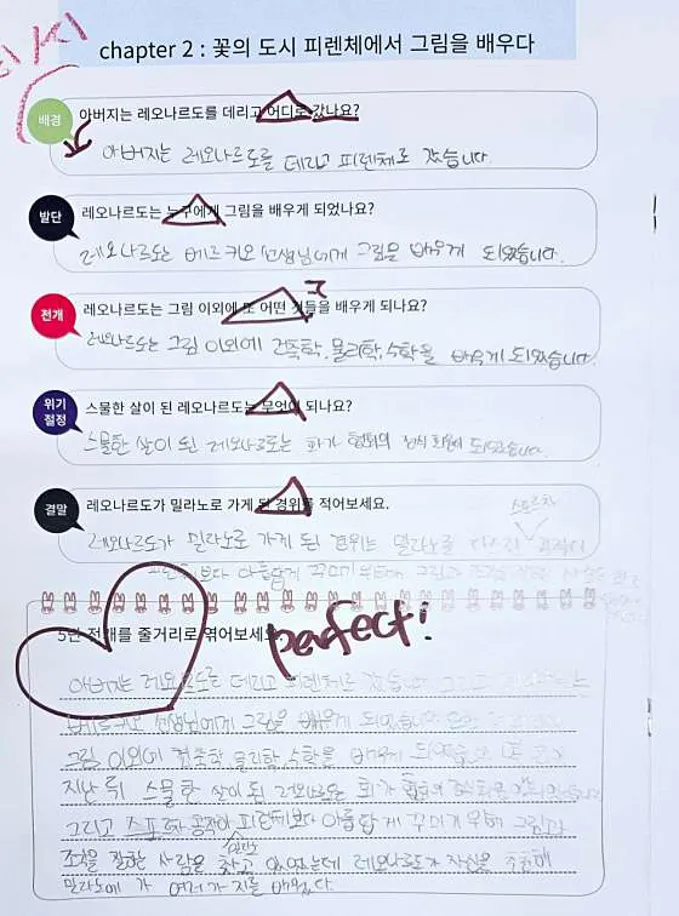 chapter 2 : 꽃의 도시 피렌체에서 그림을 배우다
배경
아버지는 레오나르도를 데리고 어디로 갔나요?
아버지는 레오나르도를 데리고 피렌체로 갔습니다.
발단
레오나르도는 누구에게 그림을 배우게 되었나요?
레오나르도는 베르키오 선생님에게 그림을 배우게 되었습니다.
전개
레오나르도는 그림 이외에 또 어떤 것들을 배우게 되나요?
레오나르도는 그림 이외에 건축학, 물리학, 수학을 배우게 되었습니다.
위기
절정
스물한 살이 된 레오나르도는 무엇이 되나요?
스물한 살이 된 레오나르도는 화가 협회의 정식 회원이 되었습니다.
결말
레오나르도가 밀라노로 가게 된 경위를 적어보세요.
스포르차
레오나르도가 밀라노로 가게 된 경위는 밀라노를 다스린 공작이
피렌체보다 아름답게 꾸미기 위해 그림과 조각을
5번 전개를 줄거리로 엮어보세요.
perfect!
아버지는 레오나르도를 데리고 피렌체로 갔습니다. 그리고
베르키오 선생님에게 그림을 배우게 되었습니다. 또한
그림 이외에 건축학, 물리학, 수학을 배우게 되었습니다.
지난 뒤 스물한 살이 된 레오나르도는 화가 협회의 정식 회원이 되었습니다.
그리고 스포르차 공작이 피렌체보다 아름답게 꾸미기 위해 그림과
밀라노
조각을 잘하는 사람을 찾고 있었는데 레오나르도가 자신을 추천해
밀라노에 가 여러 가지를 배웠다.